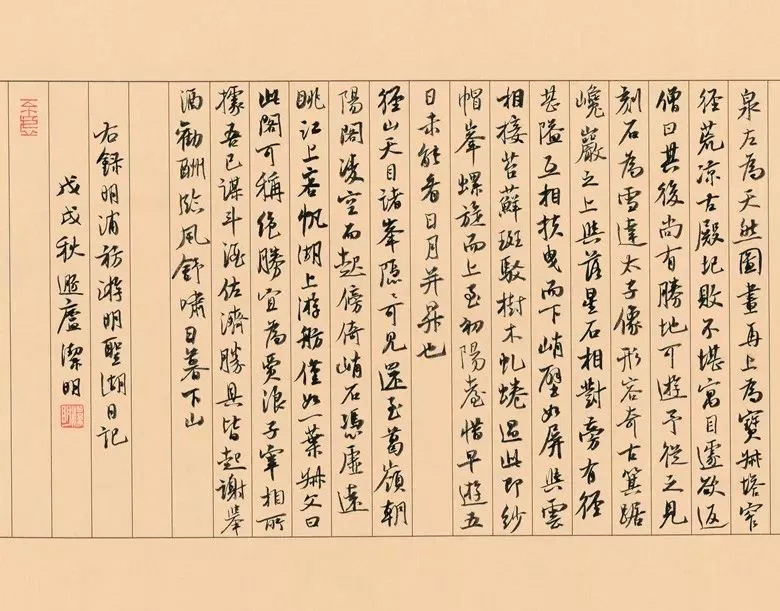 泉左為天然圖畫再上為寶叔塔窄
徑荒涼古殿圮敗不堪寓目遽欲返
僧曰其後尚有勝地可遊予從之見
刻石為雪達太子像形容奇古箕踞
巉巖之上與落星石相對旁有徑
甚隘互相扶曳而下峭壁如屏與雲
相接苔蘚斑駁樹木虬蜷過此即紗
帽峯螺旋而上至初陽臺惜早遊五
日未能看日月並昇也
徑山天目諸峯隱隱可見還至葛嶺朝
陽閣凌空而起傍倚峭石憑虛遠
眺江上客帆湖上游舫僅如一葉叔父曰
此閣可稱絕勝宜為賈浪子宰相所
據吾已謀斗酒佐濟勝具皆起謝舉
酒勸酬臨風舒嘯日暮下山
右錄明浦祊游明聖湖日記
戊戌秋 廬潔明